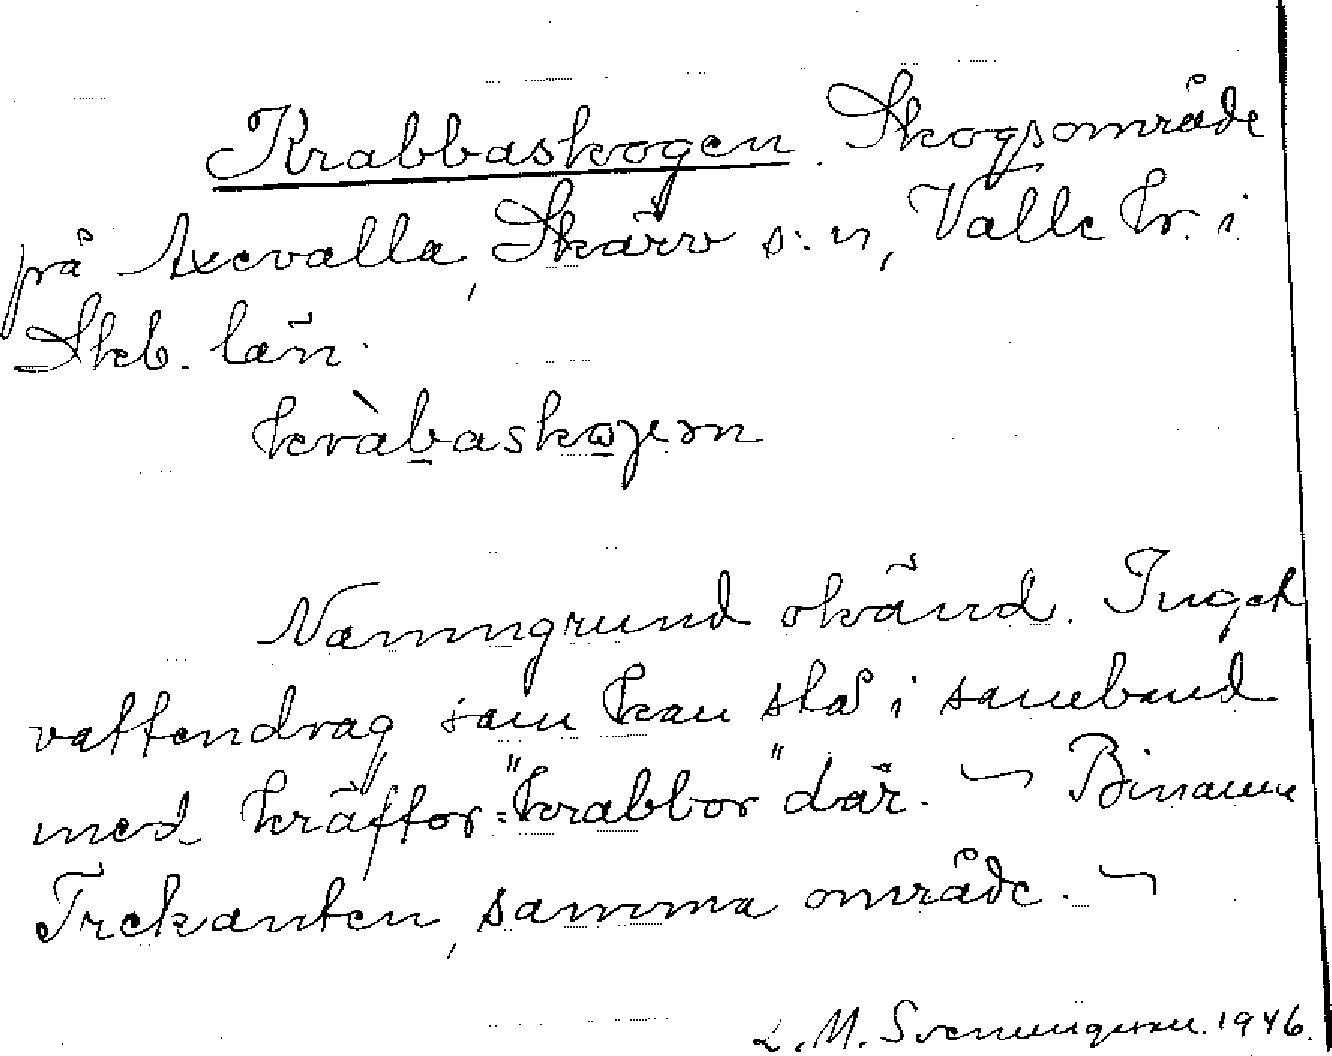 Krabbaskogen. Skogsområde
på Axevalla, Skärv s:n, Valle hr. i
Skb. län.
kràbaskogern
Namngrund okänd. Inget
vattendrag som kan stå i samband
med kräftor = "krabbor" där. — Binamn
Trekanten, samma område. —
L. M. Svenungsson. 1946.